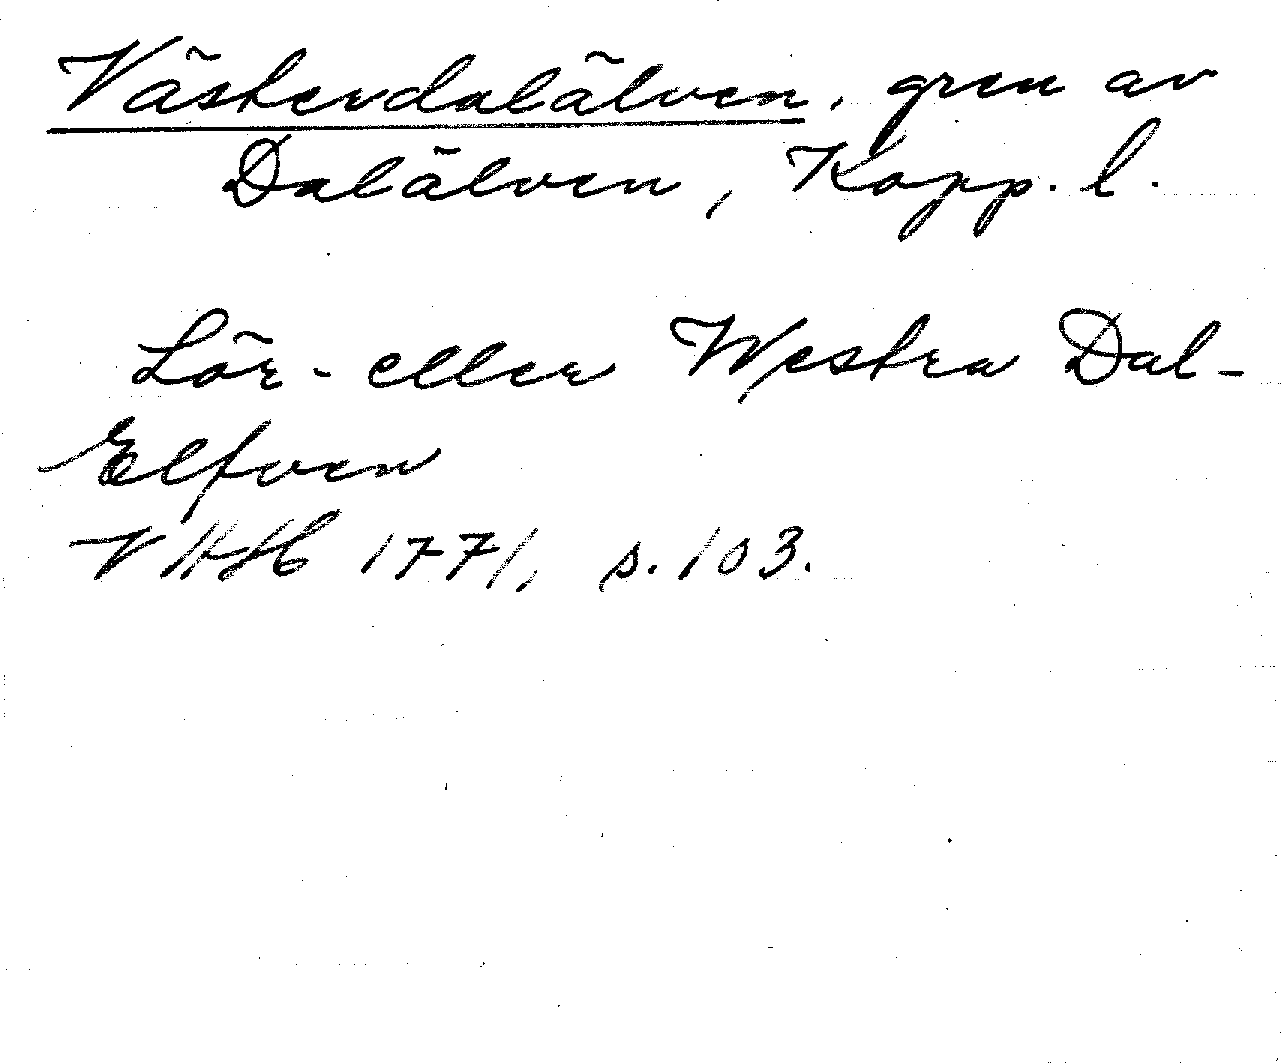 Västerdalälven, gren av
Dalälven, Kopp. l.
Lör- eller Westra Dal-
Elfven
VHAH 1771, s. 103.